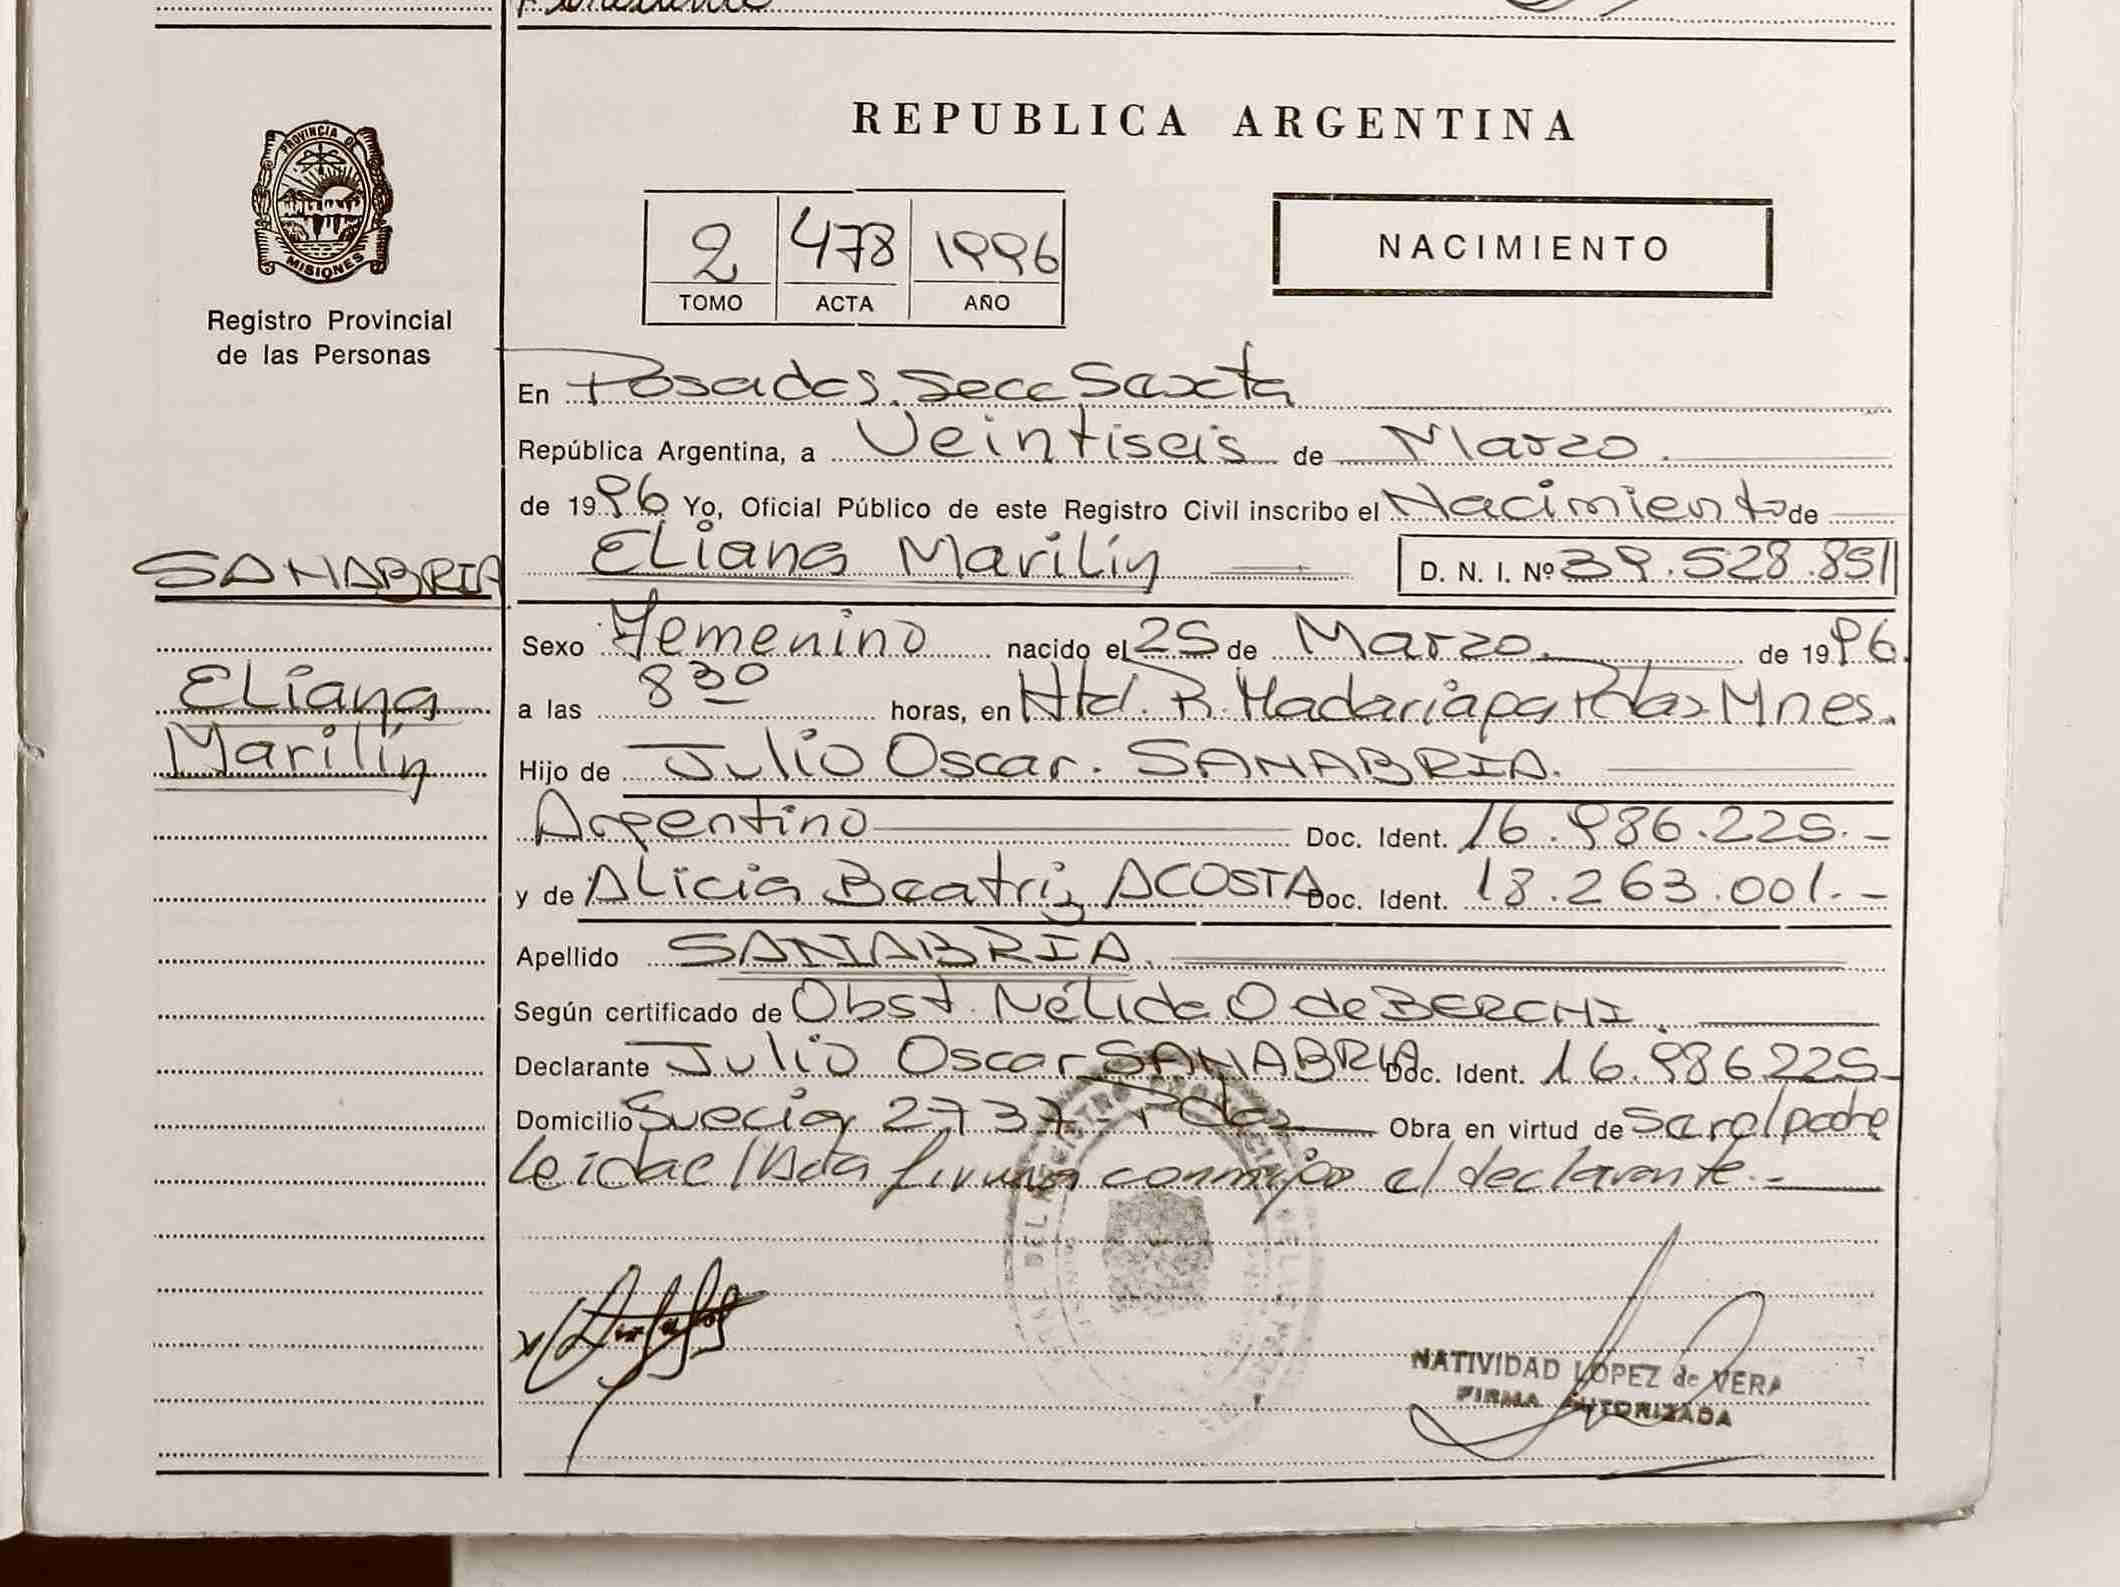 REPUBLICA ARGENTINA
PROVINCIA DE
MISIONES
Registro Provincial
de las Personas
2 478 1996
TOMO ACTA AÑO
NACIMIENTO
En Posadas. Secc Sexta
República Argentina, a Veintiseis de Marzo.
de 1996 Yo, Oficial Público de este Registro Civil inscribo el Nacimiento de
SANABRIA
Eliana Marilín D. N. I. Nº 39.528.851
Sexo Femenino nacido el 25 de Marzo de 1996.
Eliana
Marilín
a las 8 30 horas, en Htal. R. Madariaga Pdas Mnes.
Hijo de Julio Oscar. SANABRIA.
Argentino Doc. Ident. 16.986.225.-
y de Alicia Beatriz ACOSTA Doc. Ident. 18.263.001.-
Apellido SANABRIA.
Según certificado de Obst. Nélida O de BERCHI.
Declarante Julio Oscar SANABRIA Doc. Ident. 16.986225
Domicilio Suecia 2737 - Pdas Obra en virtud de ser el padre
Leida el Acta firma conmigo el declarante.-
NATIVIDAD LOPEZ de VERA
FIRMA AUTORIZADA